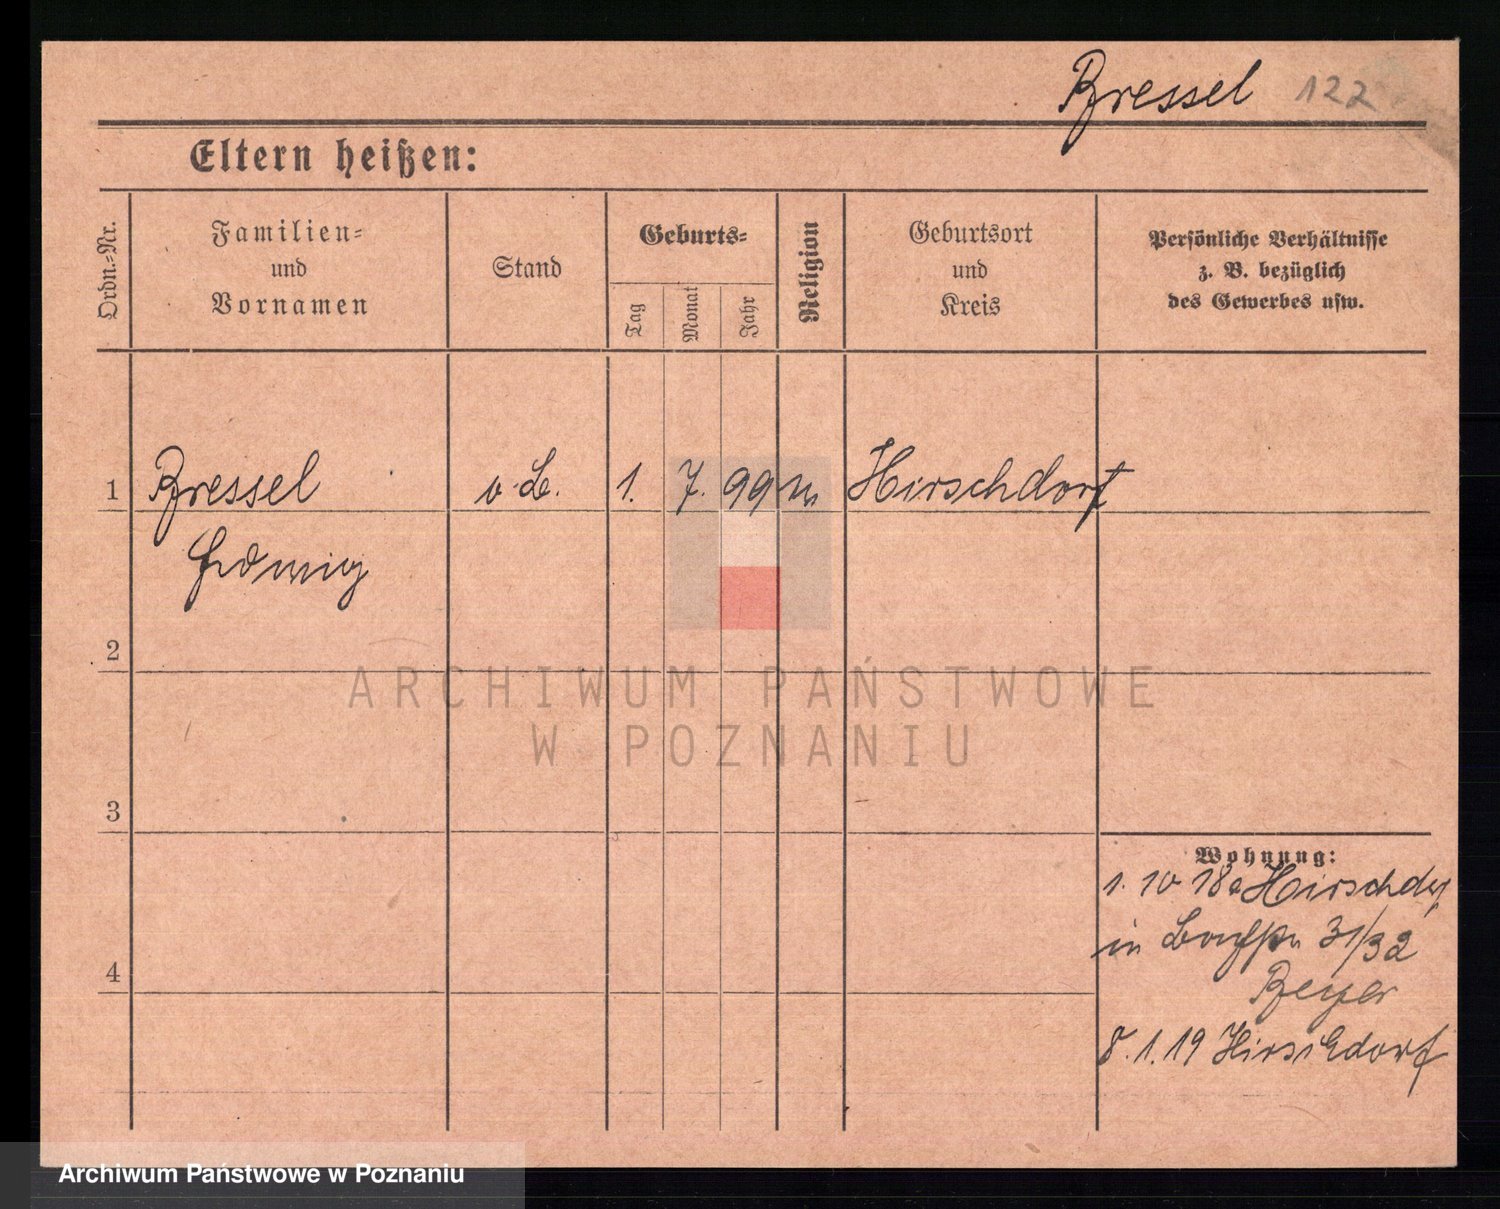 Bressel 122
Eltern heißen:
Ordn.-Nr.
Familien-
und
Vornamen
Stand
Geburts-
Tag
Monat
Jahr
Religion
Geburtsort
und
Kreis
Persönliche Verhältnisse
z. B. bezüglich
des Gewerbes usw.
1 Bressel v. L. 1. 7. 99 Hirschdorf
2
3
4
Wohnung:
1. 10 18 Hirschdf
in 31/32
Beyer
8. 1. 19 Hirschdorf
ARCHIWUM PAŃSTWOWE
W POZNANIU
Archiwum Państwowe w Poznaniu